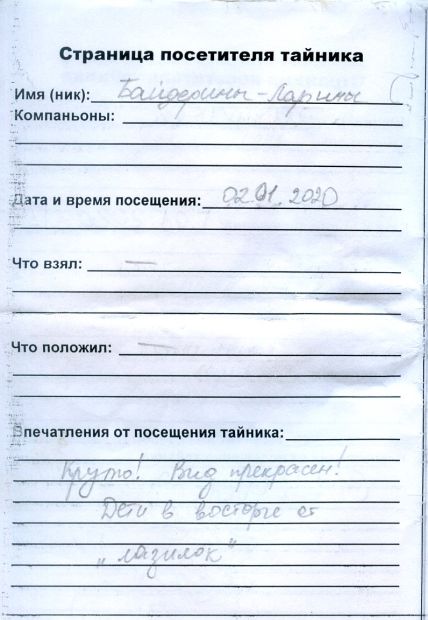 Страница посетителя тайника
Имя (ник): Байдерины-Ларины
Компаньоны:
Дата и время посещения: 02.01.2020
Что взял: —
Что положил: —
Впечатления от посещения тайника:
Круто! Вид прекрасен!
Дети в восторге от
"лазилок"